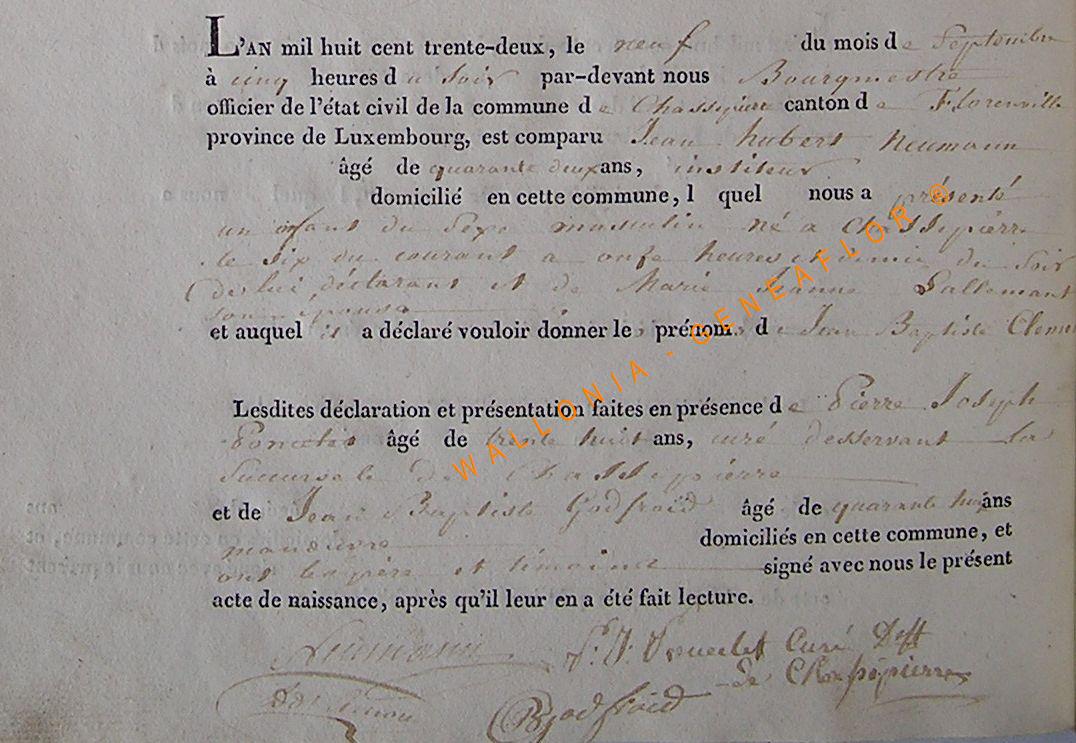 L'AN mil huit cent trente-deux, le neuf du mois de Septembre
à cinq heures du Soir par-devant nous Bourgmestre
officier de l'état civil de la commune de Chassepierre canton de Florenville
province de Luxembourg, est comparu Jean hubert Neumann
âgé de quarante deux ans, instituteur
domicilié en cette commune, lequel nous a présenté
un enfant du Sexe masculin né a Chassepierre
le six du courant a onze heures et demie du Soir
de lui déclarant et de Marie Jeanne Lallemant
son épouse
et auquel il a déclaré vouloir donner les prénoms de Jean Baptiste Clem
Lesdites déclaration et présentation faites en présence de Pierre Joseph
Poncelet âgé de trente huit ans, curé desservant la
Succursale de Chassepierre
et de Jean Baptiste Godfroid âgé de quarante huit ans
manœuvre domiciliés en cette commune, et
ont les père et témoins signé avec nous le présent
acte de naissance, après qu'il leur en a été fait lecture.
Neumann P. J. Poncelet Curé Dess
de Chassepierre
Godfroid
WALLONIA - GENEAFLOR ©